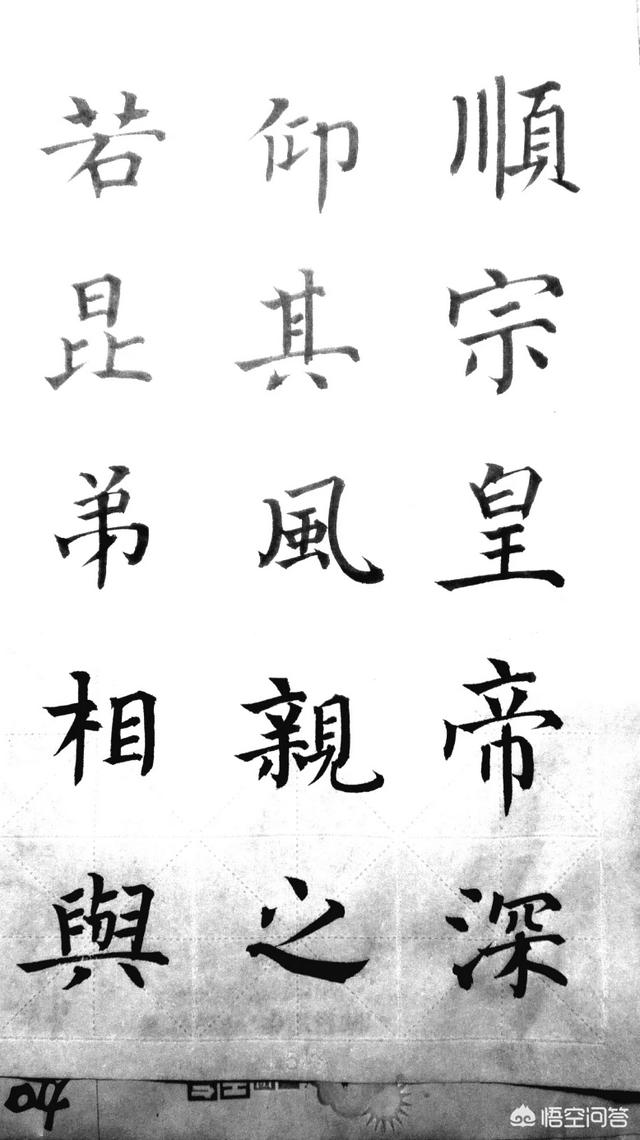 順宗皇帝深
仰其風親之
若昆弟相與
04
悟空问答